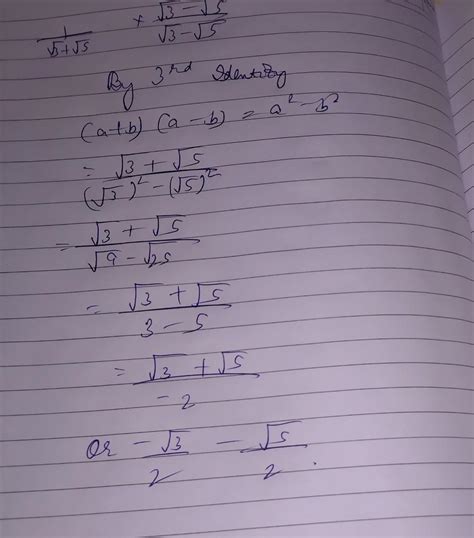 1/(√3+√5) × (√3 - √5)/(√3 - √5)
By 3rd Identity
(a+b) (a - b) = a² - b²
= (√3 + √5)/((√3)² - (√5)²)
= (√3 + √5)/(√9 - √25)
= (√3 + √5)/(3 - 5)
= (√3 + √5)/-2
Or -√3/2 - √5/2 .